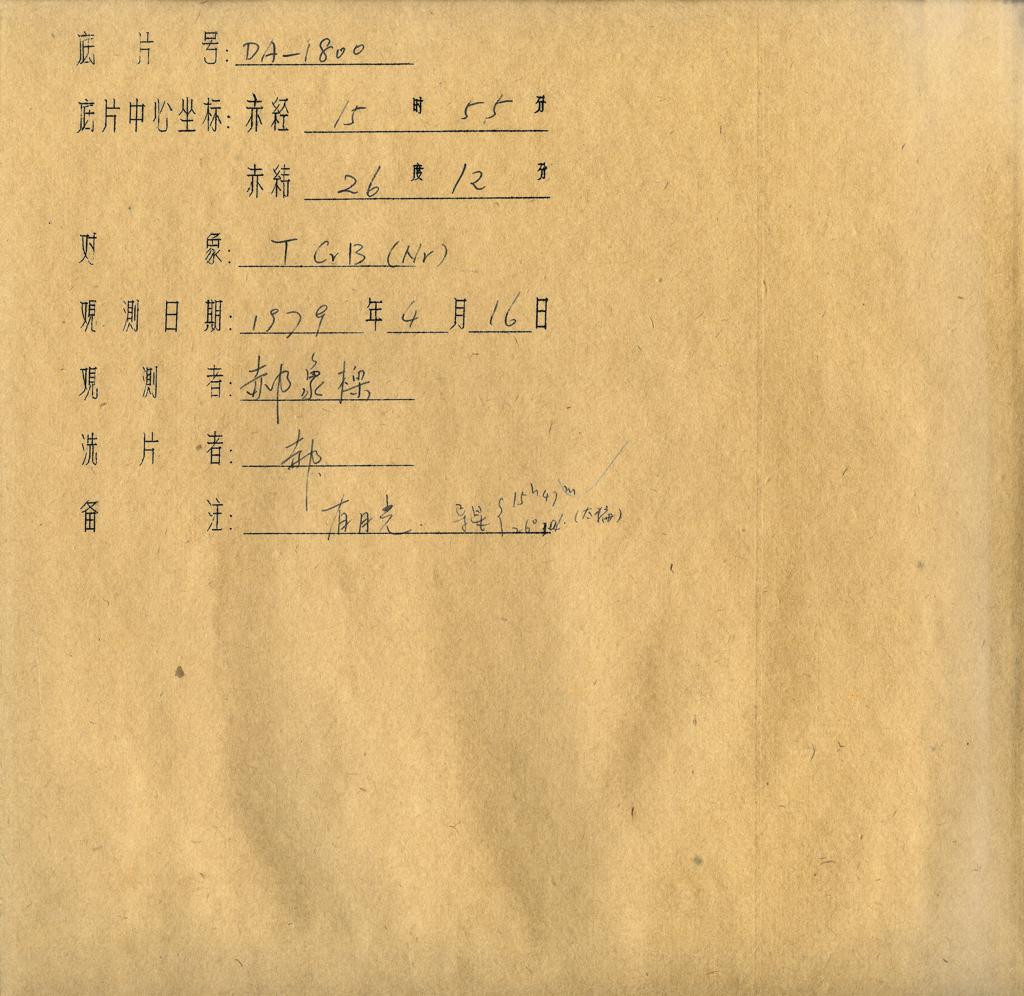 底片号: DA-1800
底片中心坐标: 赤経 15 时 55 分
赤緯 26 度 12 分
对象: T CrB (Nr)
覌测日期: 1979 年 4 月 16 日
覌测者: 郝象樑
洗片者: 郝
备注: 有月光. 导星 { 15h47m
26° (太偏)